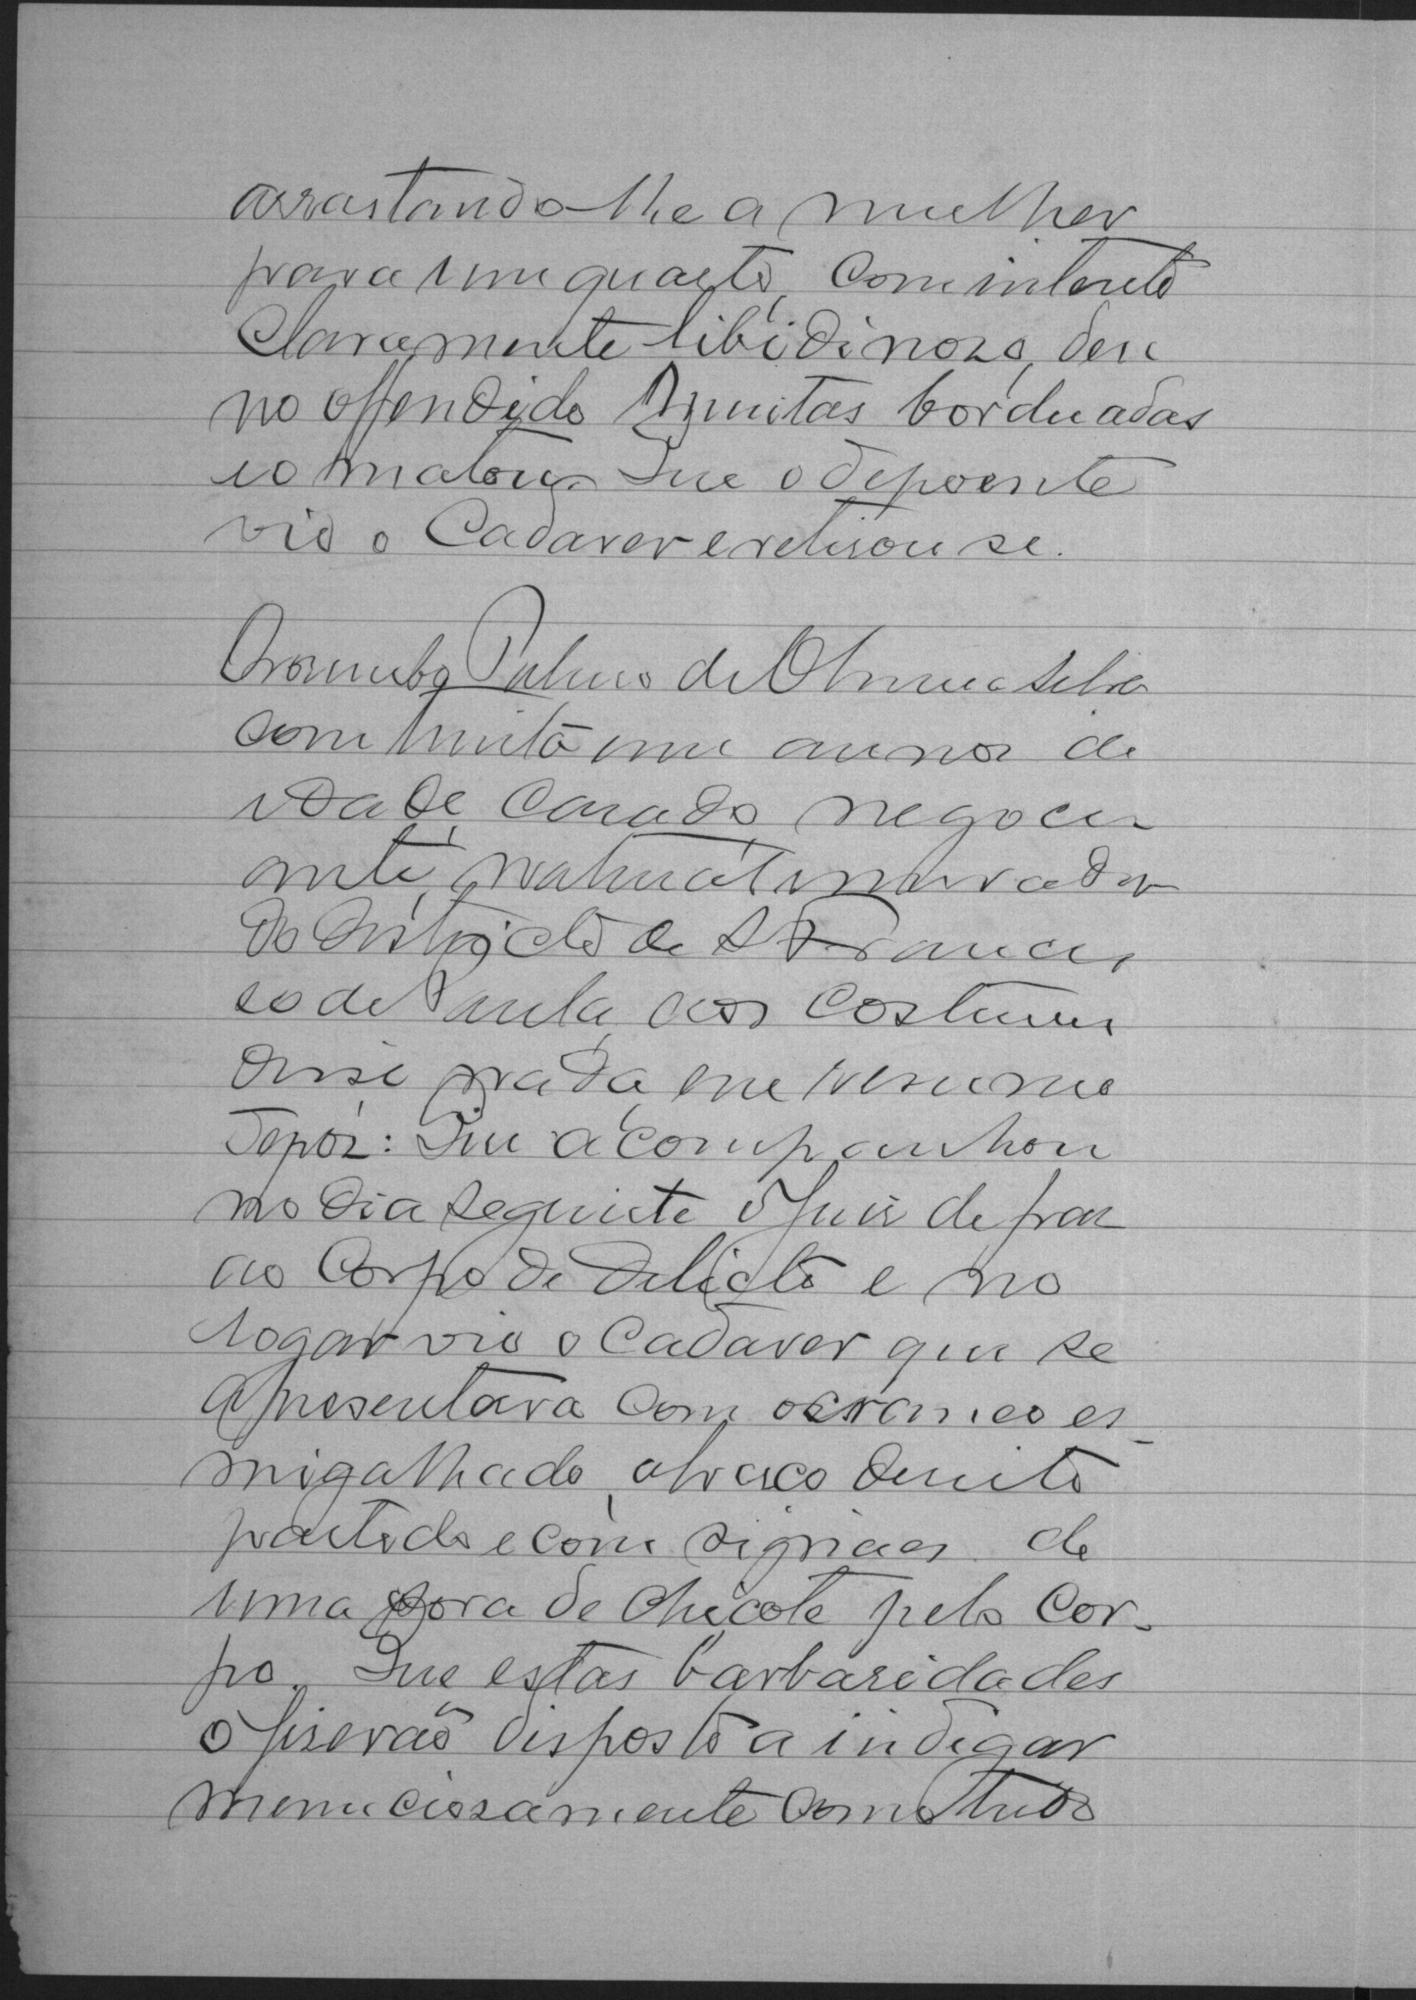 arrastando-lhe a mulher
para um quarto, com intento
claramente libidinozo, deu
no offendido muitas borduadas
e o matou. Que o depoente
vio o Cadaver e retirou se.
de Oliveira Silva
com trinta um annos de
idade, casado, negoci-
ante, natural e morador
do districto de S. Francis
co de Paula, aos costumes
disse nada, em resumo
depoz: Que acompanhou
no dia seguinte o Juis de paz
ao Corpo de Delicto e no
logar vio o Cadaver que se
apresentava com o craneo es-
migalhado, o braço direito
partido e com signaes de
uma sova de chicote pelo Cor-
po. Que estas barbaridades
o fiserão disposto a indagar
menuciosamente como tudo